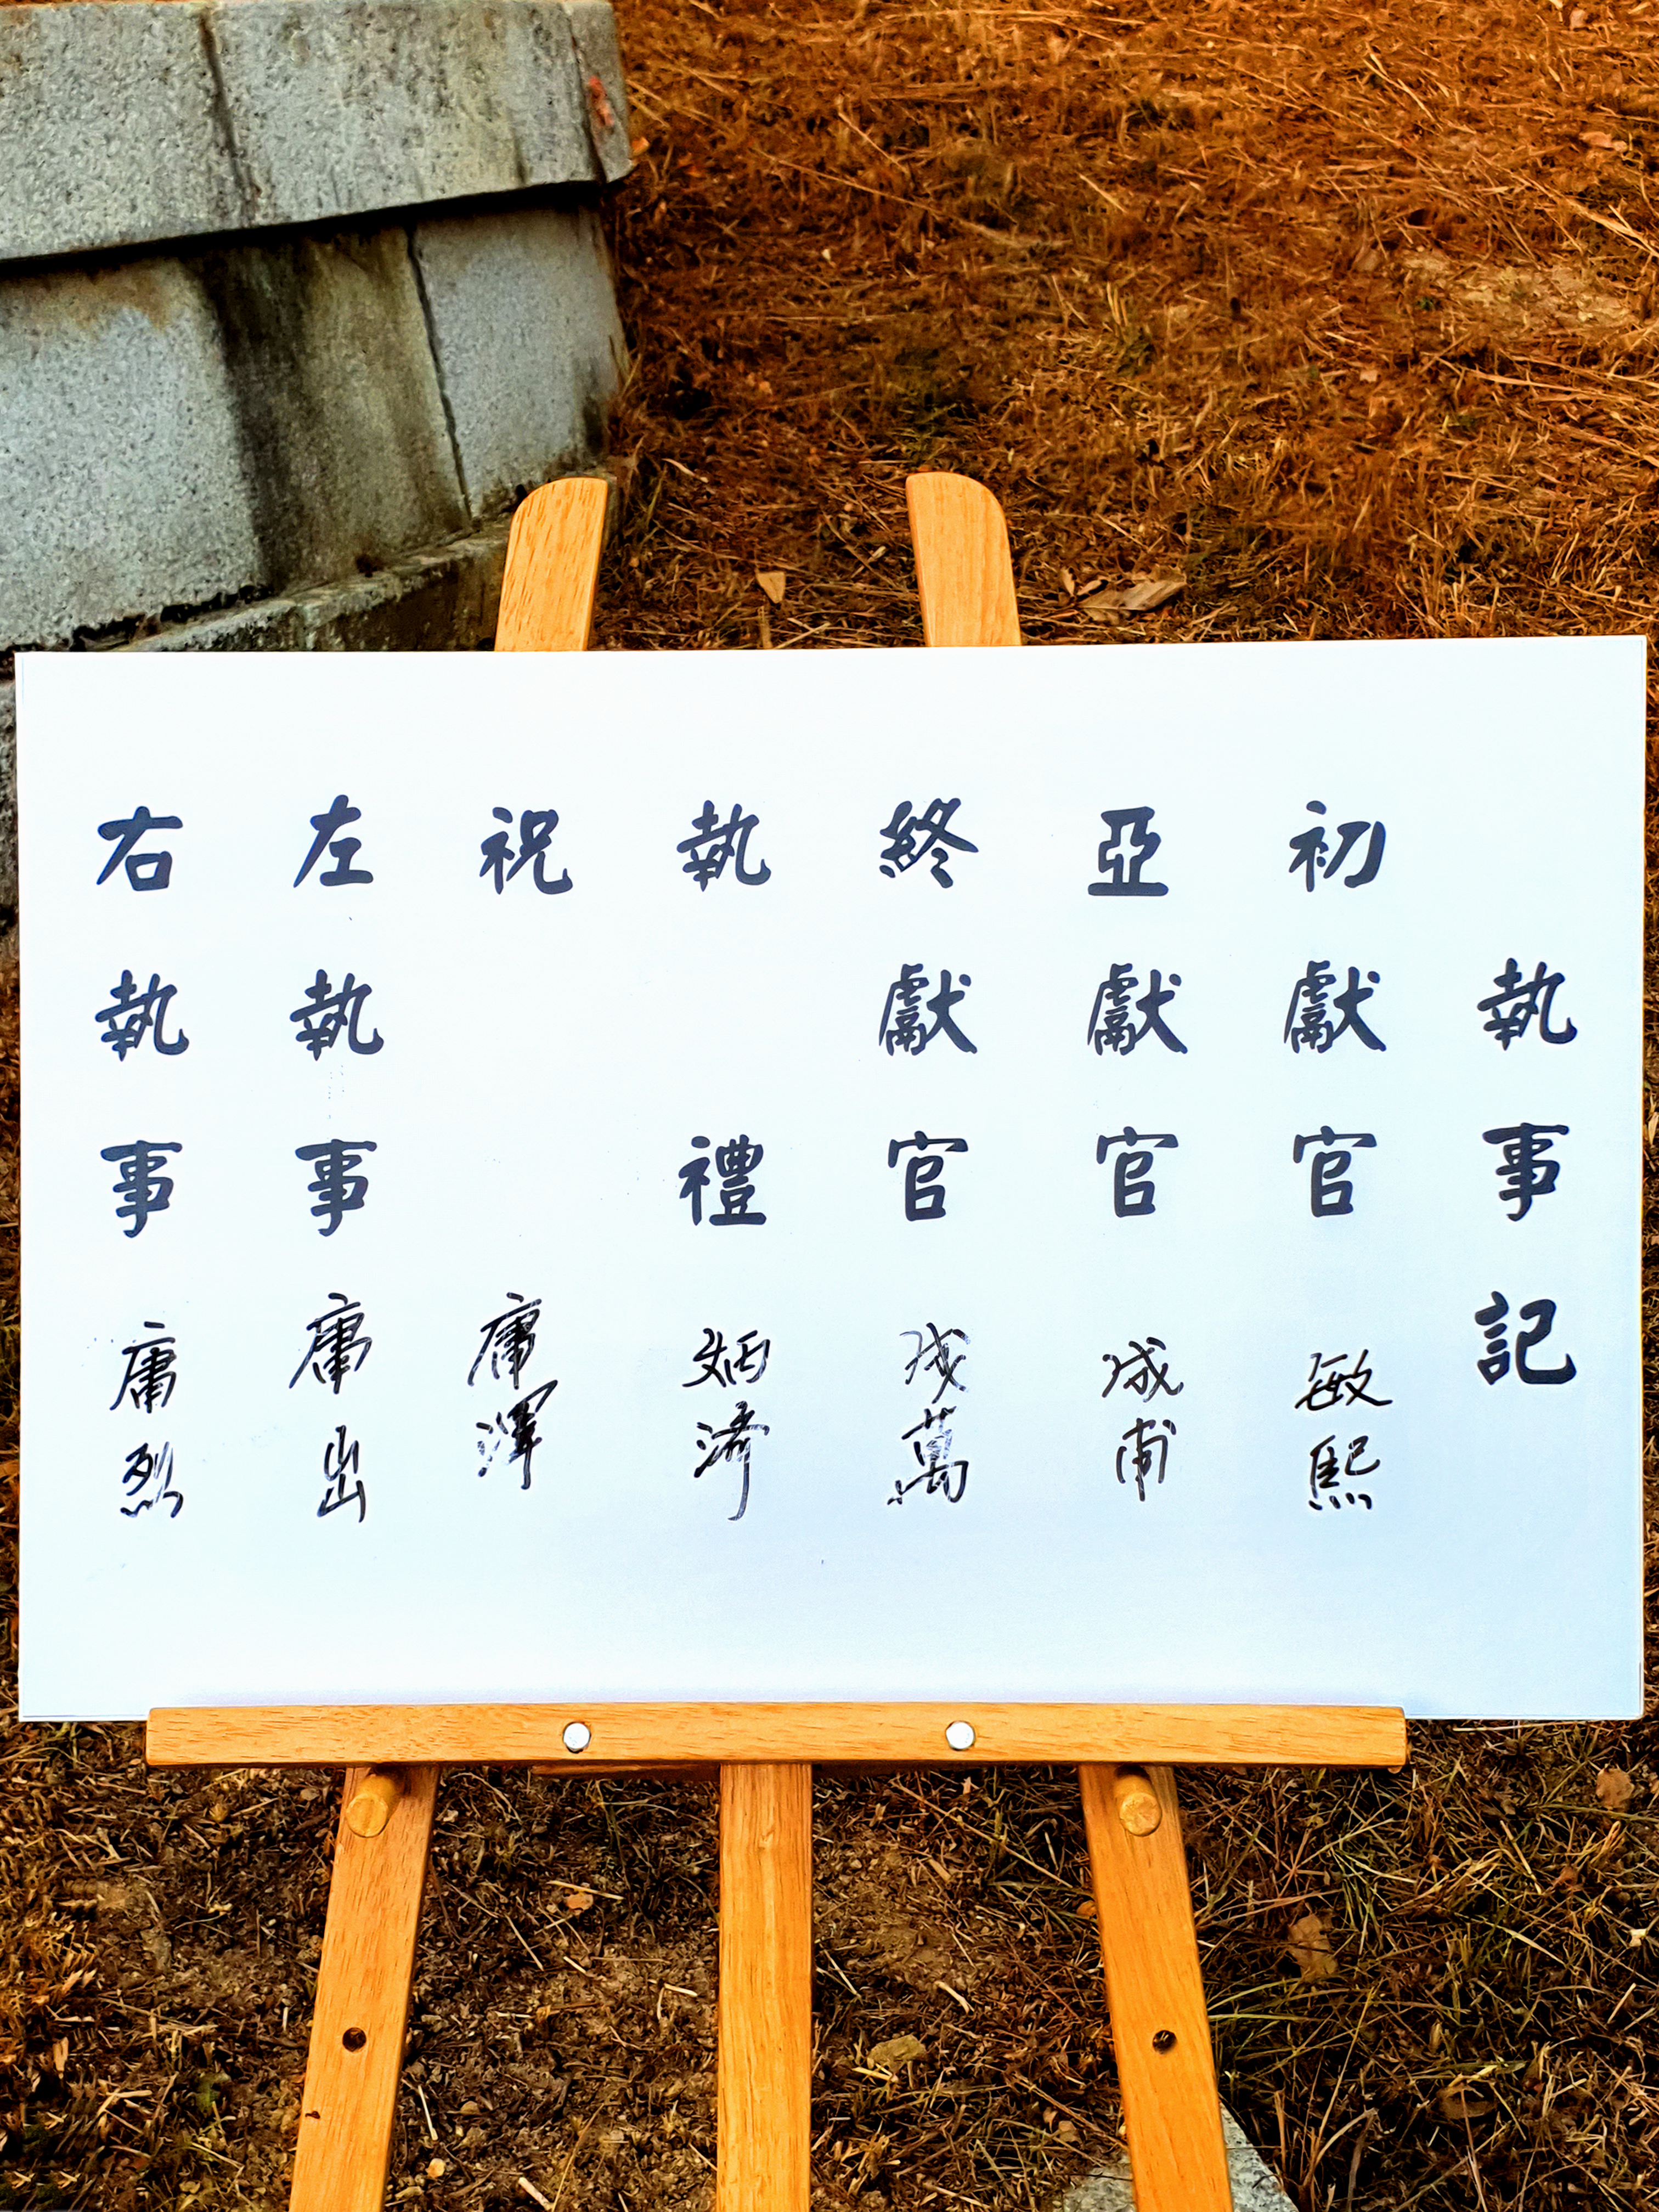 執事記
初獻官 敏熙
亞獻官 成甫
終獻官 成萬
執禮 炳濟
祝 庸澤
左執事 庸出
右執事 庸烈